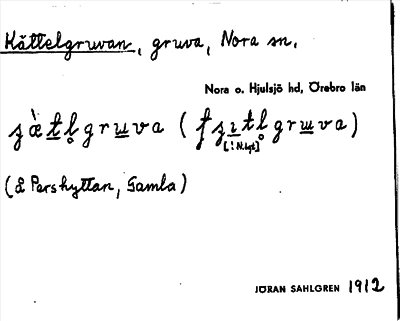 Kättelgruvan, gruva, Nora sn.
Nora o. Hjulsjö hd, Örebro län
ʒæ̀tl̥gruva (fʒıtl̥gruva)
[! N.lgt]
(å Pershyttan, Gamla)
JÖRAN SAHLGREN 1912